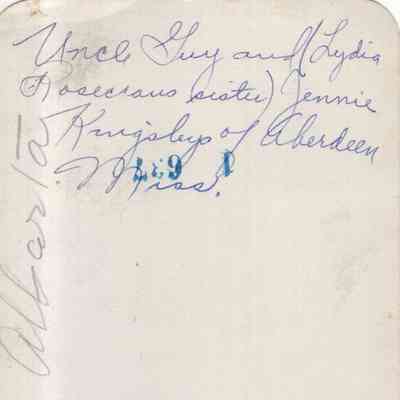 Uncle Guy and (Lydia
Rosecrans sister) Jennie
Kingsleys of Aberdeen
Miss.
Alberta